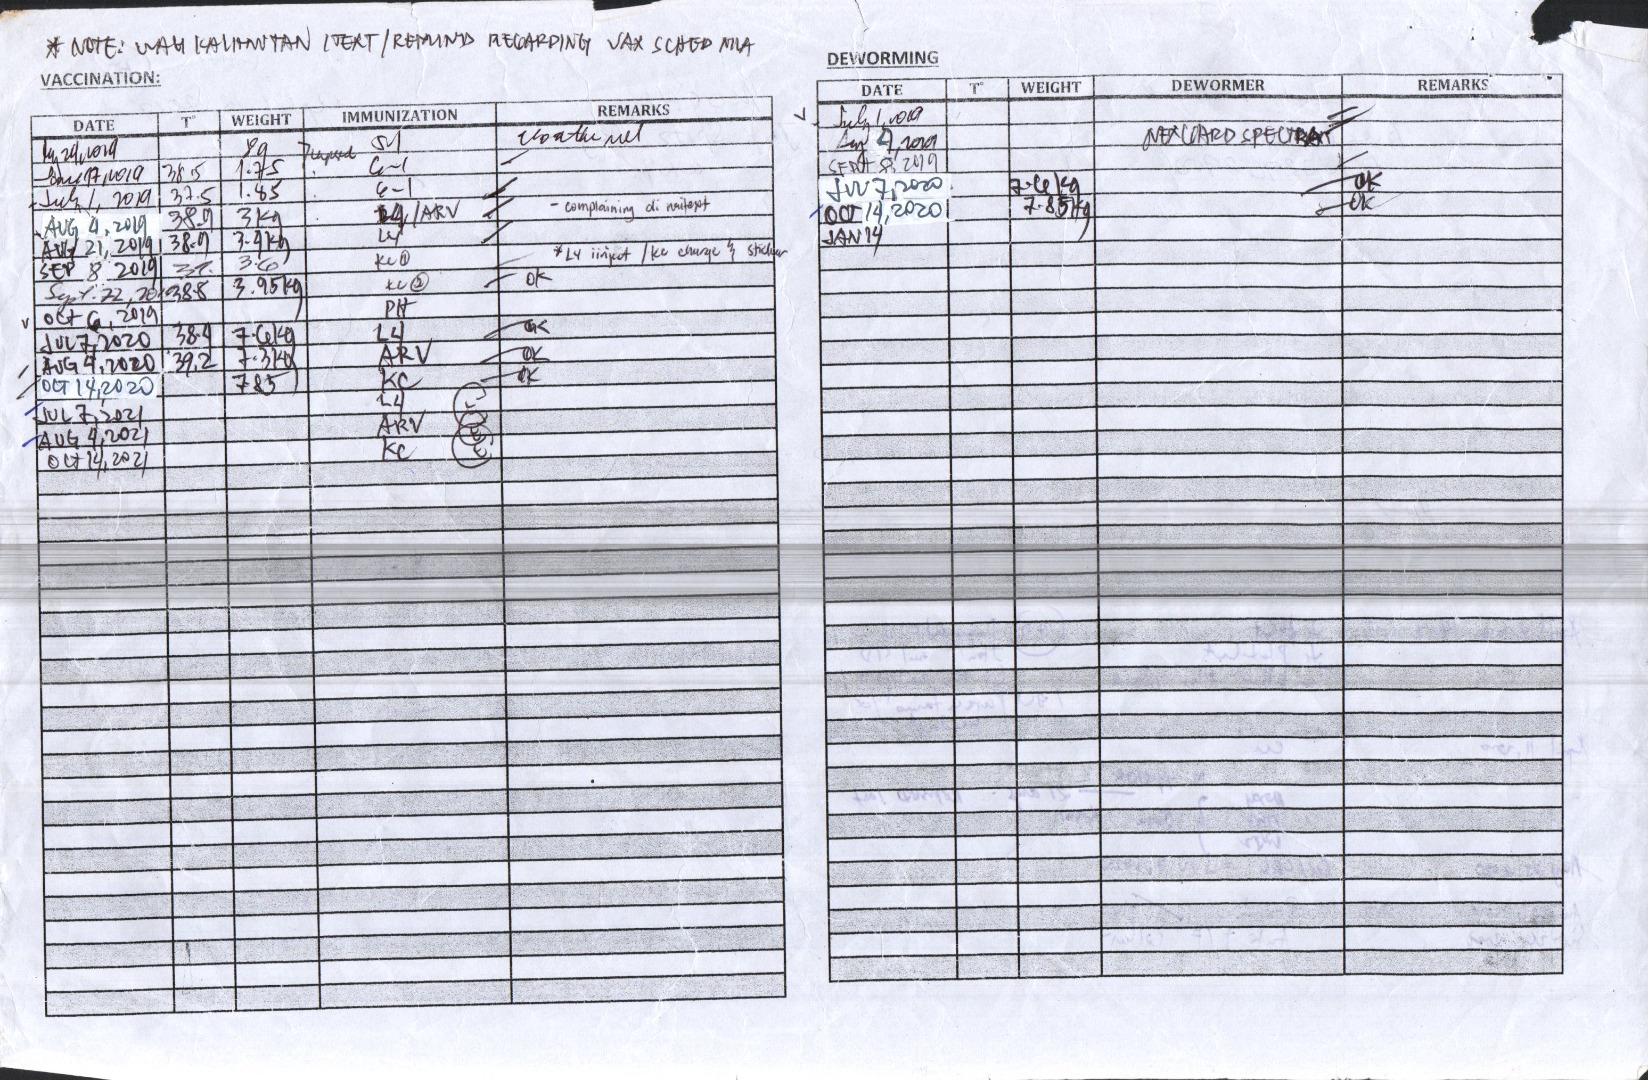 * NOTE: WAG KALIMUTAN ITEXT/REMIND REGARDING VAX SCHED NILA
VACCINATION:
DATE T° WEIGHT IMMUNIZATION REMARKS
29, 2019
June 17, 2019 38.5 1.75 6-1
July 1, 2019 37.5 1.85 6-1
AUG 4, 2019 38.9 3kg L4/ARV - complaining di naitext
AUG 21, 2019 38.9 3.4kg L4
SEP 8 2019 3.6 KC① *L4 iinject / KC charge & sticker
Sept. 22, 2019 38.8 3.95kg KC② OK
OCT 6, 2019 PH
JUL 7, 2020 38.4 7.6kg L4 OK
AUG 4, 2020 39.2 7.3kg ARV OK
OCT 14, 2020 7.85 KC OK
JUL 7, 2021 L4
AUG 4, 2021 ARV
OCT 14, 2021 KC
DEWORMING
DATE T° WEIGHT DEWORMER REMARKS
July 1, 2019
Aug 4, 2019 NEXGARD SPECTRA
SEPT 8, 2019
JUL 7, 2020 7.6kg OK
OCT 14, 2020 7.85kg OK
JAN 14